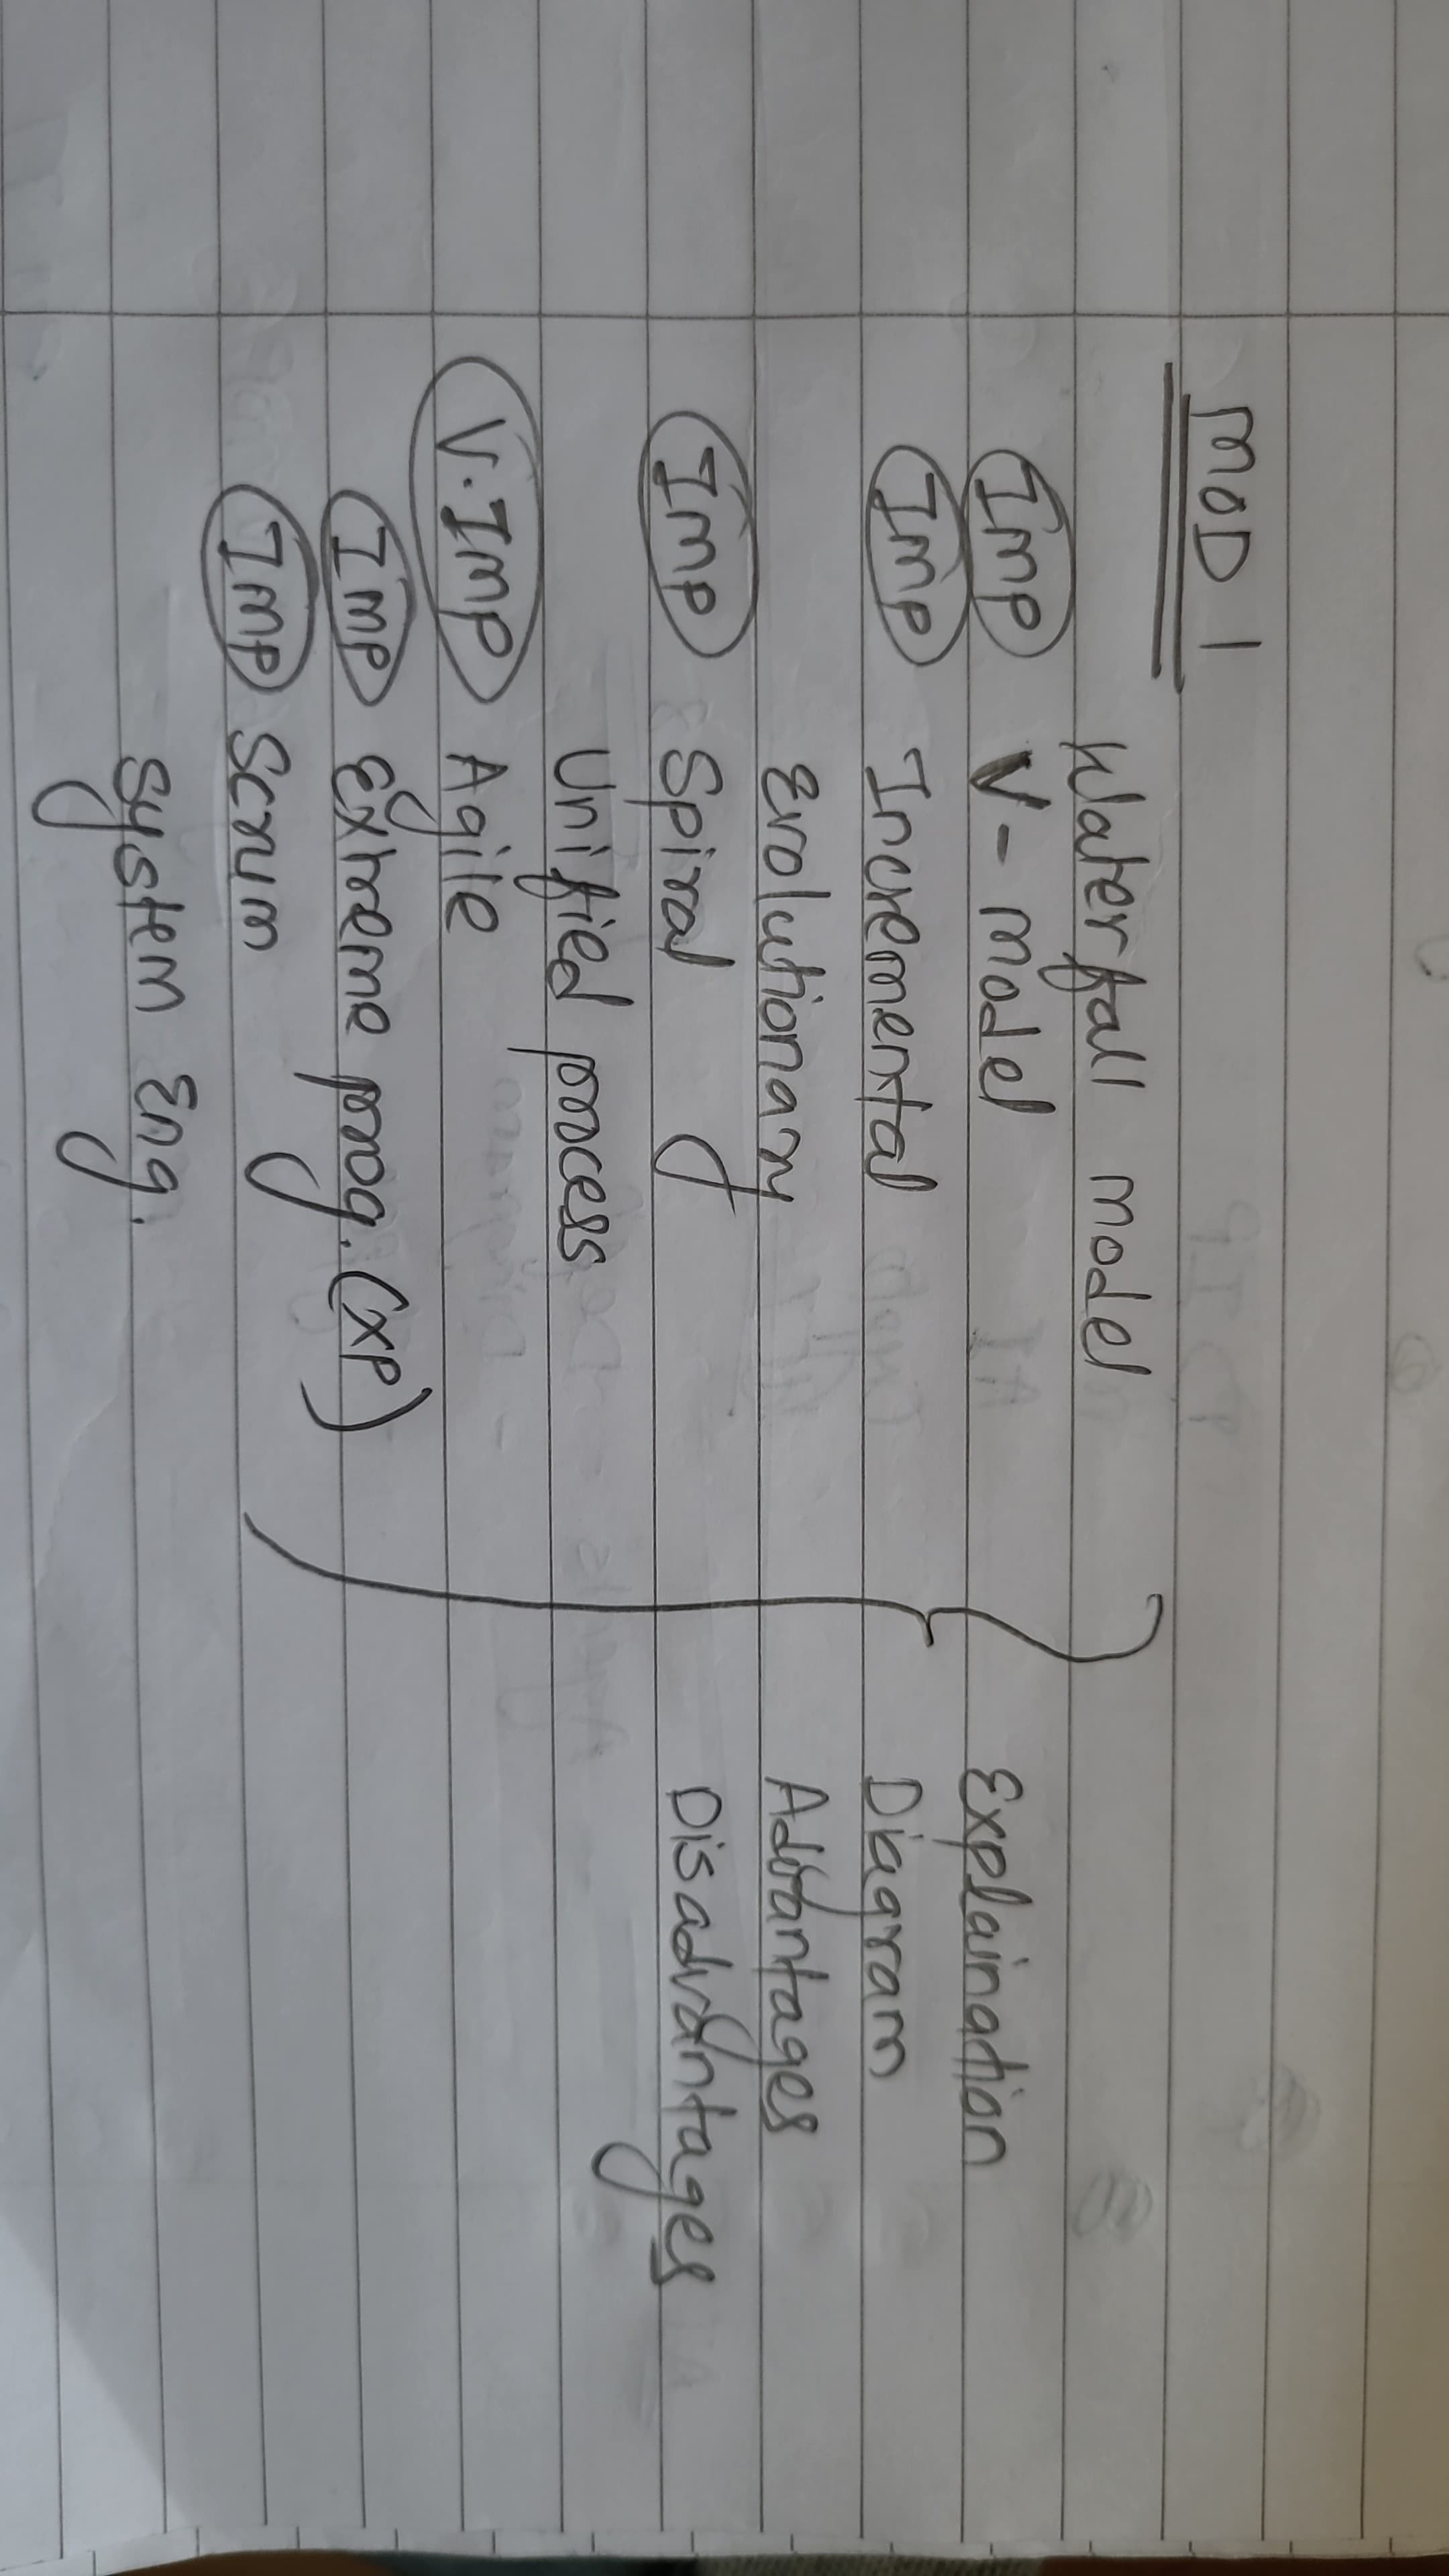 MOD 1
Waterfall model
Imp V- model
Imp Incremental
Evolutionary
Imp Spiral
Unified process
V.Imp Agile
Imp Extreme prog. (XP)
Imp Scrum
System Eng.
Explaination
Diagram
Advantages
Disadvantages